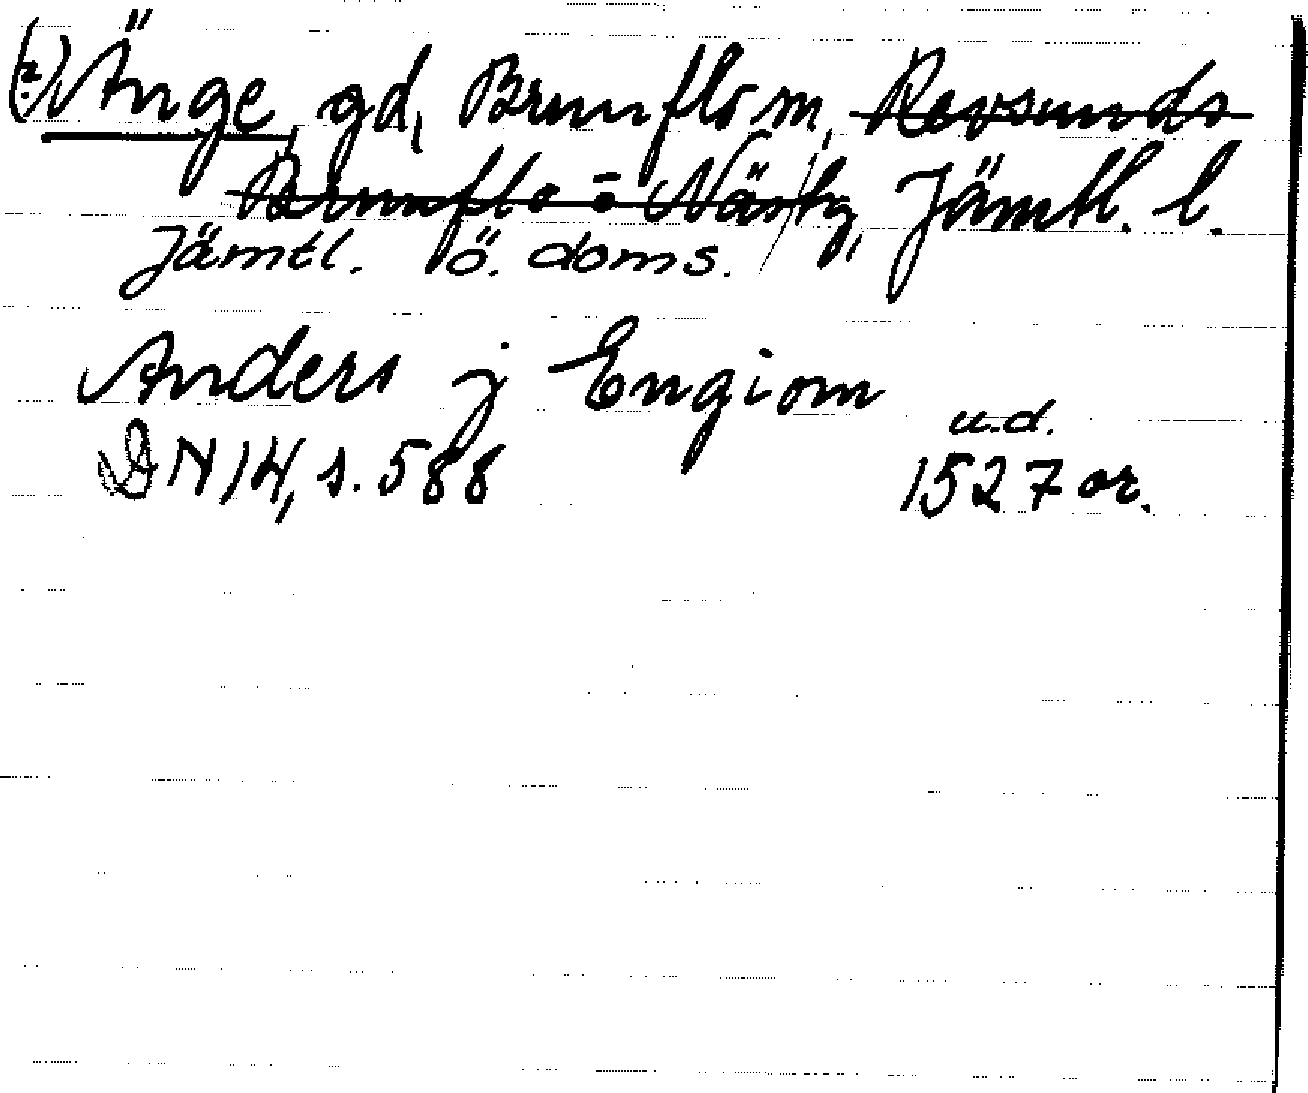 (?) Änge, gd, Brunflo sn, Revsunds
Brunflo o Näs tg, Jämtl. l.
Jämtl. ö. doms.
Anders j Engiom
u.d.
DN 14, s. 588 1527 or.